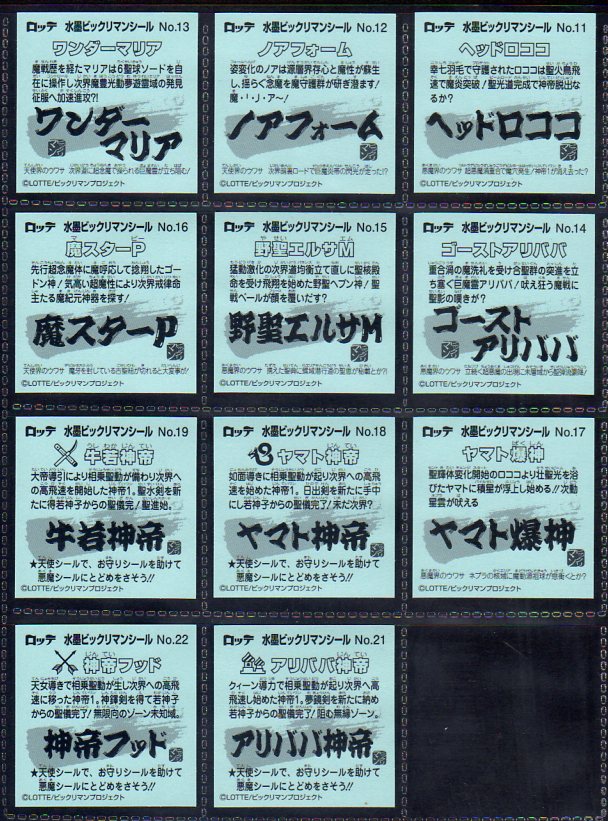 ロッテ 水墨ビックリマンシール No.13
ワンダーマリア
魔戦歴を経たマリアは6聖球ソードを自
在に操作し次界魔豊光動夢遊雲域の発見
征服へ加速進攻?!
ワンダー
マリア
天使界のウワサ
©LOTTE/ビックリマンプロジェクト
ロッテ 水墨ビックリマンシール No.12
ノアフォーム
姿変化のノアは源層界存心と魔性が蘇生
し、揺らぐ念魔を魔守護群が研ぎ澄ます/
魔・I・J・ア〜/
ノアフォーム
天使界のウワサ
©LOTTE/ビックリマンプロジェクト
ロッテ 水墨ビックリマンシール No.11
ヘッドロココ
幸七羽毛で守護されたロココは聖火鳥飛
速で魔炎突破/聖光道完成で神帝脱出な
るか?
ヘッドロココ
悪魔界のウワサ
©LOTTE/ビックリマンプロジェクト
ロッテ 水墨ビックリマンシール No.16
魔スターP
先行超念魔体に魔呼応して捻翔したゴー
ドン神/気高い超魔性により次界戒律命
主たる魔紀元神器を探す!
魔スターP
天使界のウワサ 魔牙を封している古聖絵が切れると大変事が/
©LOTTE/ビックリマンプロジェクト
ロッテ 水墨ビックリマンシール No.15
野聖エルサM
猛動激化の次界道均衡立て直しに聖核殿
命を受け飛翔を始めた野聖ヘブン神/聖
戦ベールが顔を覆いだす?
野聖エルサM
悪魔界のウワサ
©LOTTE/ビックリマンプロジェクト
ロッテ 水墨ビックリマンシール No.14
ゴーストアリババ
重合渦の魔洗礼を受け合聖群の突進を立
ち塞ぐ巨魔霊アリババ/吠え狂う魔戦に
聖影の嘆きが?
ゴースト
アリババ
悪魔界のウワサ
©LOTTE/ビックリマンプロジェクト
ロッテ 水墨ビックリマンシール No.19
牛若神帝
大帝導引により相乗動力が備わり次界へ
の高飛速を開始した神帝1。聖水剣を新
たに得若神子からの聖儀完了/聖進始。
牛若神帝
★天使シールで、お守りシールを助けて
悪魔シールにとどめをさそう!!
©LOTTE/ビックリマンプロジェクト
ロッテ 水墨ビックリマンシール No.18
ヤマト神帝
如面導きに相乗動力が起り次界への高飛
速を始めた神帝1。日出剣を新たに手中
にし若神子からの聖儀完了/未だ次界?
ヤマト神帝
★天使シールで、お守りシールを助けて
悪魔シールにとどめをさそう!!
©LOTTE/ビックリマンプロジェクト
ロッテ 水墨ビックリマンシール No.17
ヤマト爆神
聖輝体変化開始のロココより壮聖光を浴
びたヤマトに積星が浮上し始める!!次動
星雲が吠える
ヤマト爆神
悪魔界のウワサ ネブラの核域に魔動源祖球が怒衝くとか?
©LOTTE/ビックリマンプロジェクト
ロッテ 水墨ビックリマンシール No.22
神帝フッド
天女導きで相乗聖動が生じ次界への高飛
速に移った神帝1。神鐸剣を得て若神子
からの聖儀完了/無限向のゾーン未知域。
神帝フッド
★天使シールで、お守りシールを助けて
悪魔シールにとどめをさそう!!
©LOTTE/ビックリマンプロジェクト
ロッテ 水墨ビックリマンシール No.21
アリババ神帝
クィーン導力で相乗聖動が起り次界へ高
飛速し始めた神帝1。夢鏡剣を新たに納め
若神子からの聖儀完了/阻む無縁ゾーン。
アリババ神帝
★天使シールで、お守りシールを助けて
悪魔シールにとどめをさそう!!
©LOTTE/ビックリマンプロジェクト